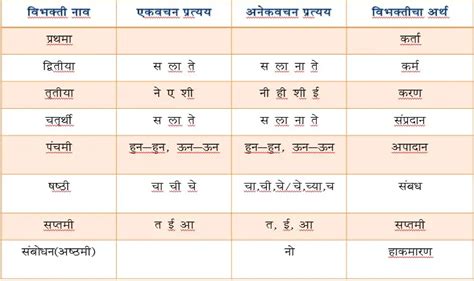 विभक्ती नाव एकवचन प्रत्यय अनेकवचन प्रत्यय विभक्तीचा अर्थ
प्रथमा कर्ता
द्वितीया स ला ते स ला ना ते कर्म
तृतीया ने ए शी नी ही शी ई करण
चतुर्थी स ला ते स ला ना ते संप्रदान
पंचमी हुन–हुन, ऊन–ऊन हुन–हुन, ऊन–ऊन अपादान
षष्ठी चा ची चे चा,ची,चे/चे,च्या,च संबध
सप्तमी त ई आ त, ई, आ सप्तमी
संबोधन(अष्ठमी) नो हाकमारण